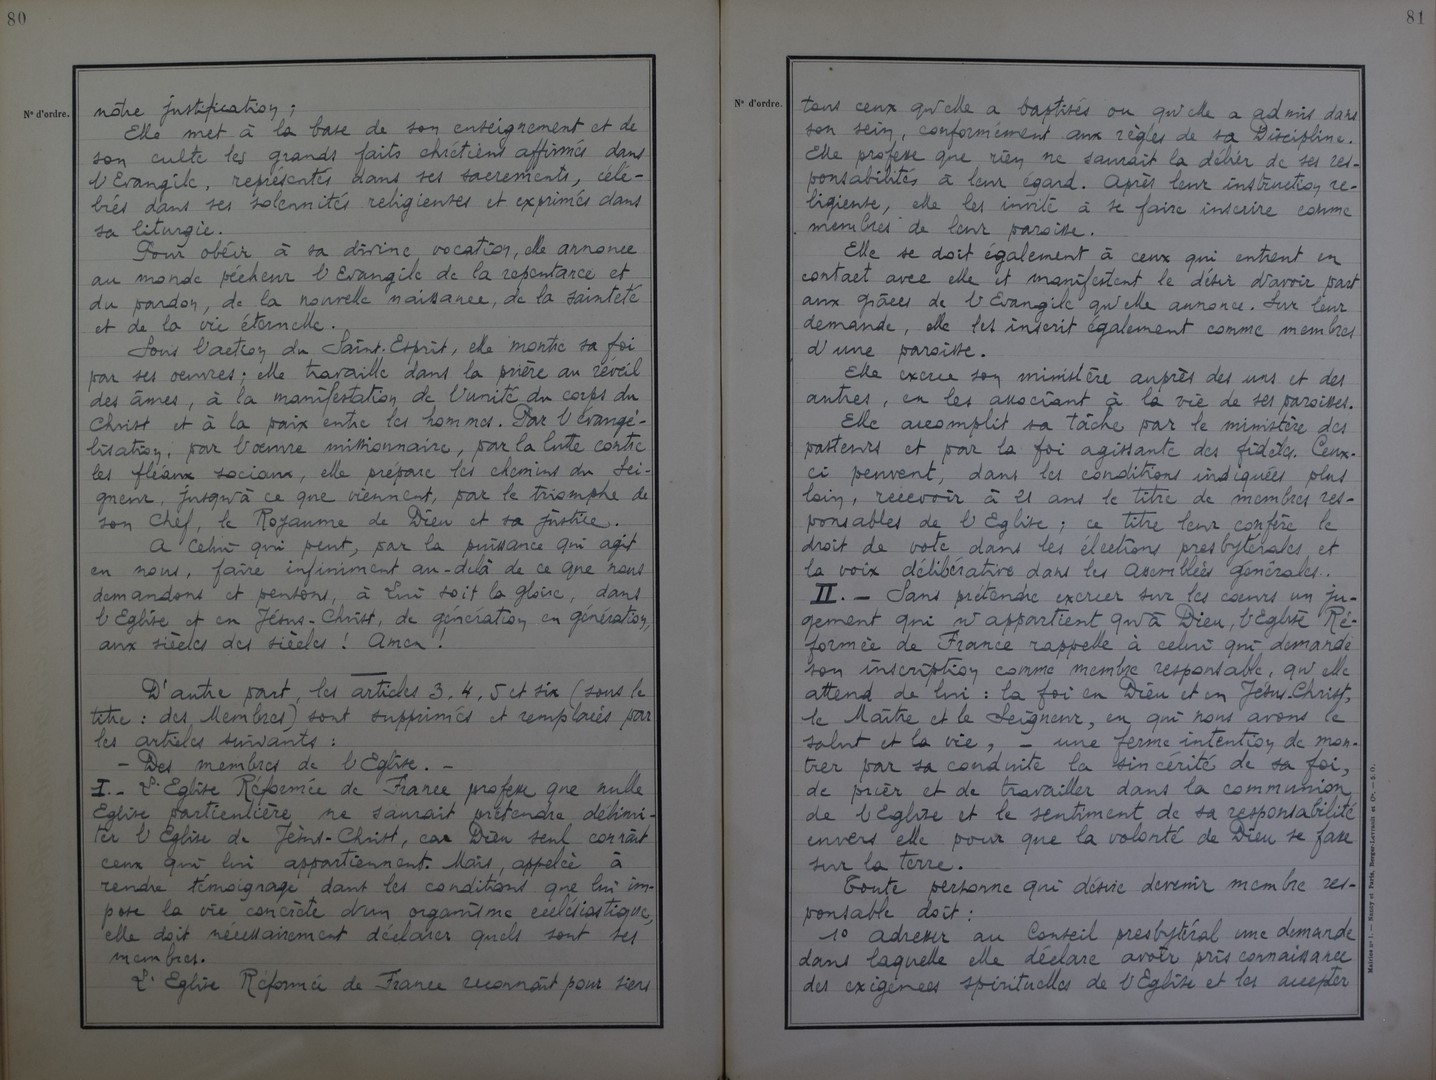 80
N° d'ordre.
nôtre justification ;
Elle met à la base de son enseignement et de
son culte les grands faits chrétiens affirmés dans
l'Evangile, représentés dans ses sacrements, célé-
brés dans ses solennités religieuses et exprimés dans
sa liturgie.
Pour obéir à sa divine vocation, elle annonce
au monde pécheur l'Evangile de la repentance et
du pardon, de la nouvelle naissance, de la sainteté
et de la vie éternelle.
Sous l'action du Saint-Esprit, elle montre sa foi
par ses oeuvres ; elle travaille dans la prière au réveil
des âmes, à la manifestation de l'unité du corps du
Christ et à la paix entre les hommes. Par l'évangé-
lisation, par l'oeuvre missionnaire, par la lutte contre
les fléaux sociaux, elle prépare les chemins du Sei-
gneur, jusqu'à ce que viennent, par le triomphe de
son Chef, le Royaume de Dieu et sa justice.
A Celui qui peut, par la puissance qui agit
en nous, faire infiniment au-delà de ce que nous
demandons et pensons, à Lui soit la gloire, dans
l'Eglise et en Jésus-Christ, de génération en génération,
aux siècles des siècles ! Amen !
D'autre part, les articles 3. 4. 5 et six (sous le
titre : des Membres) sont supprimés et remplacés par
les articles suivants :
- Des membres de l'Eglise. -
I. - L'Eglise Réformée de France professe que nulle
Eglise particulière ne saurait prétendre délimi-
ter l'Eglise de Jésus-Christ, car Dieu seul connait
ceux qui lui appartiennent. Mais, appelée à
rendre témoignage dans les conditions que lui im-
pose la vie concrète d'un organisme ecclésiastique,
elle doit nécessairement déclarer quels sont ses
membres.
L'Eglise Réformée de France reconnaît pour siens
81
N° d'ordre.
tous ceux qu'elle a baptisés ou qu'elle a admis dans
son sein, conformément aux règles de sa Discipline.
Elle professe que rien ne saurait la délier de ses res-
ponsabilités à leur égard. Après leur instruction re-
ligieuse, elle les invite à se faire inscrire comme
membres de leur paroisse.
Elle se doit également à ceux qui entrent en
contact avec elle et manifestent le désir d'avoir part
aux grâces de l'Evangile qu'elle annonce. Sur leur
demande, elle les inscrit également comme membres
d'une paroisse.
Elle exerce son ministère auprès des uns et des
autres, en les associant à la vie de ses paroisses.
Elle accomplit sa tâche par le ministère des
pasteurs et par la foi agissante des fidèles. Ceux-
ci peuvent, dans les conditions indiquées plus
loin, recevoir à 21 ans le titre de membres res-
ponsables de l'Eglise ; ce titre leur confère le
droit de vote dans les élections presbytérales et
la voix délibérative dans les Assemblées générales.
II. - Sans prétendre exercer sur les coeurs un ju-
gement qui n'appartient qu'à Dieu, l'Eglise Ré-
formée de France rappelle à celui qui demande
son inscription comme membre responsable, qu'elle
attend de lui : la foi en Dieu et en Jésus-Christ,
le Maître et le Seigneur, en qui nous avons le
salut et la vie, - une ferme intention de mon-
trer par sa conduite la sincérité de sa foi,
de prier et de travailler dans la communion
de l'Eglise et le sentiment de sa responsabilité
envers elle pour que la volonté de Dieu se fasse
sur la terre.
Toute personne qui désire devenir membre res-
ponsable doit :
1° adresser au Conseil presbytéral une demande
dans laquelle elle déclare avoir pris connaissance
des exigences spirituelles de l'Eglise et les accepter
Nancy et Paris, Berger-Levrault et Cie.